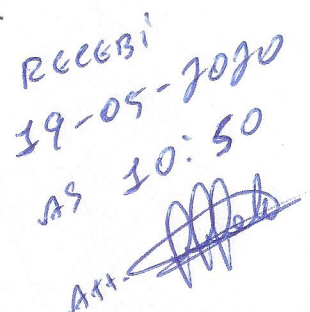 RECEBi
19-05-2020
AS 10:50
Att.